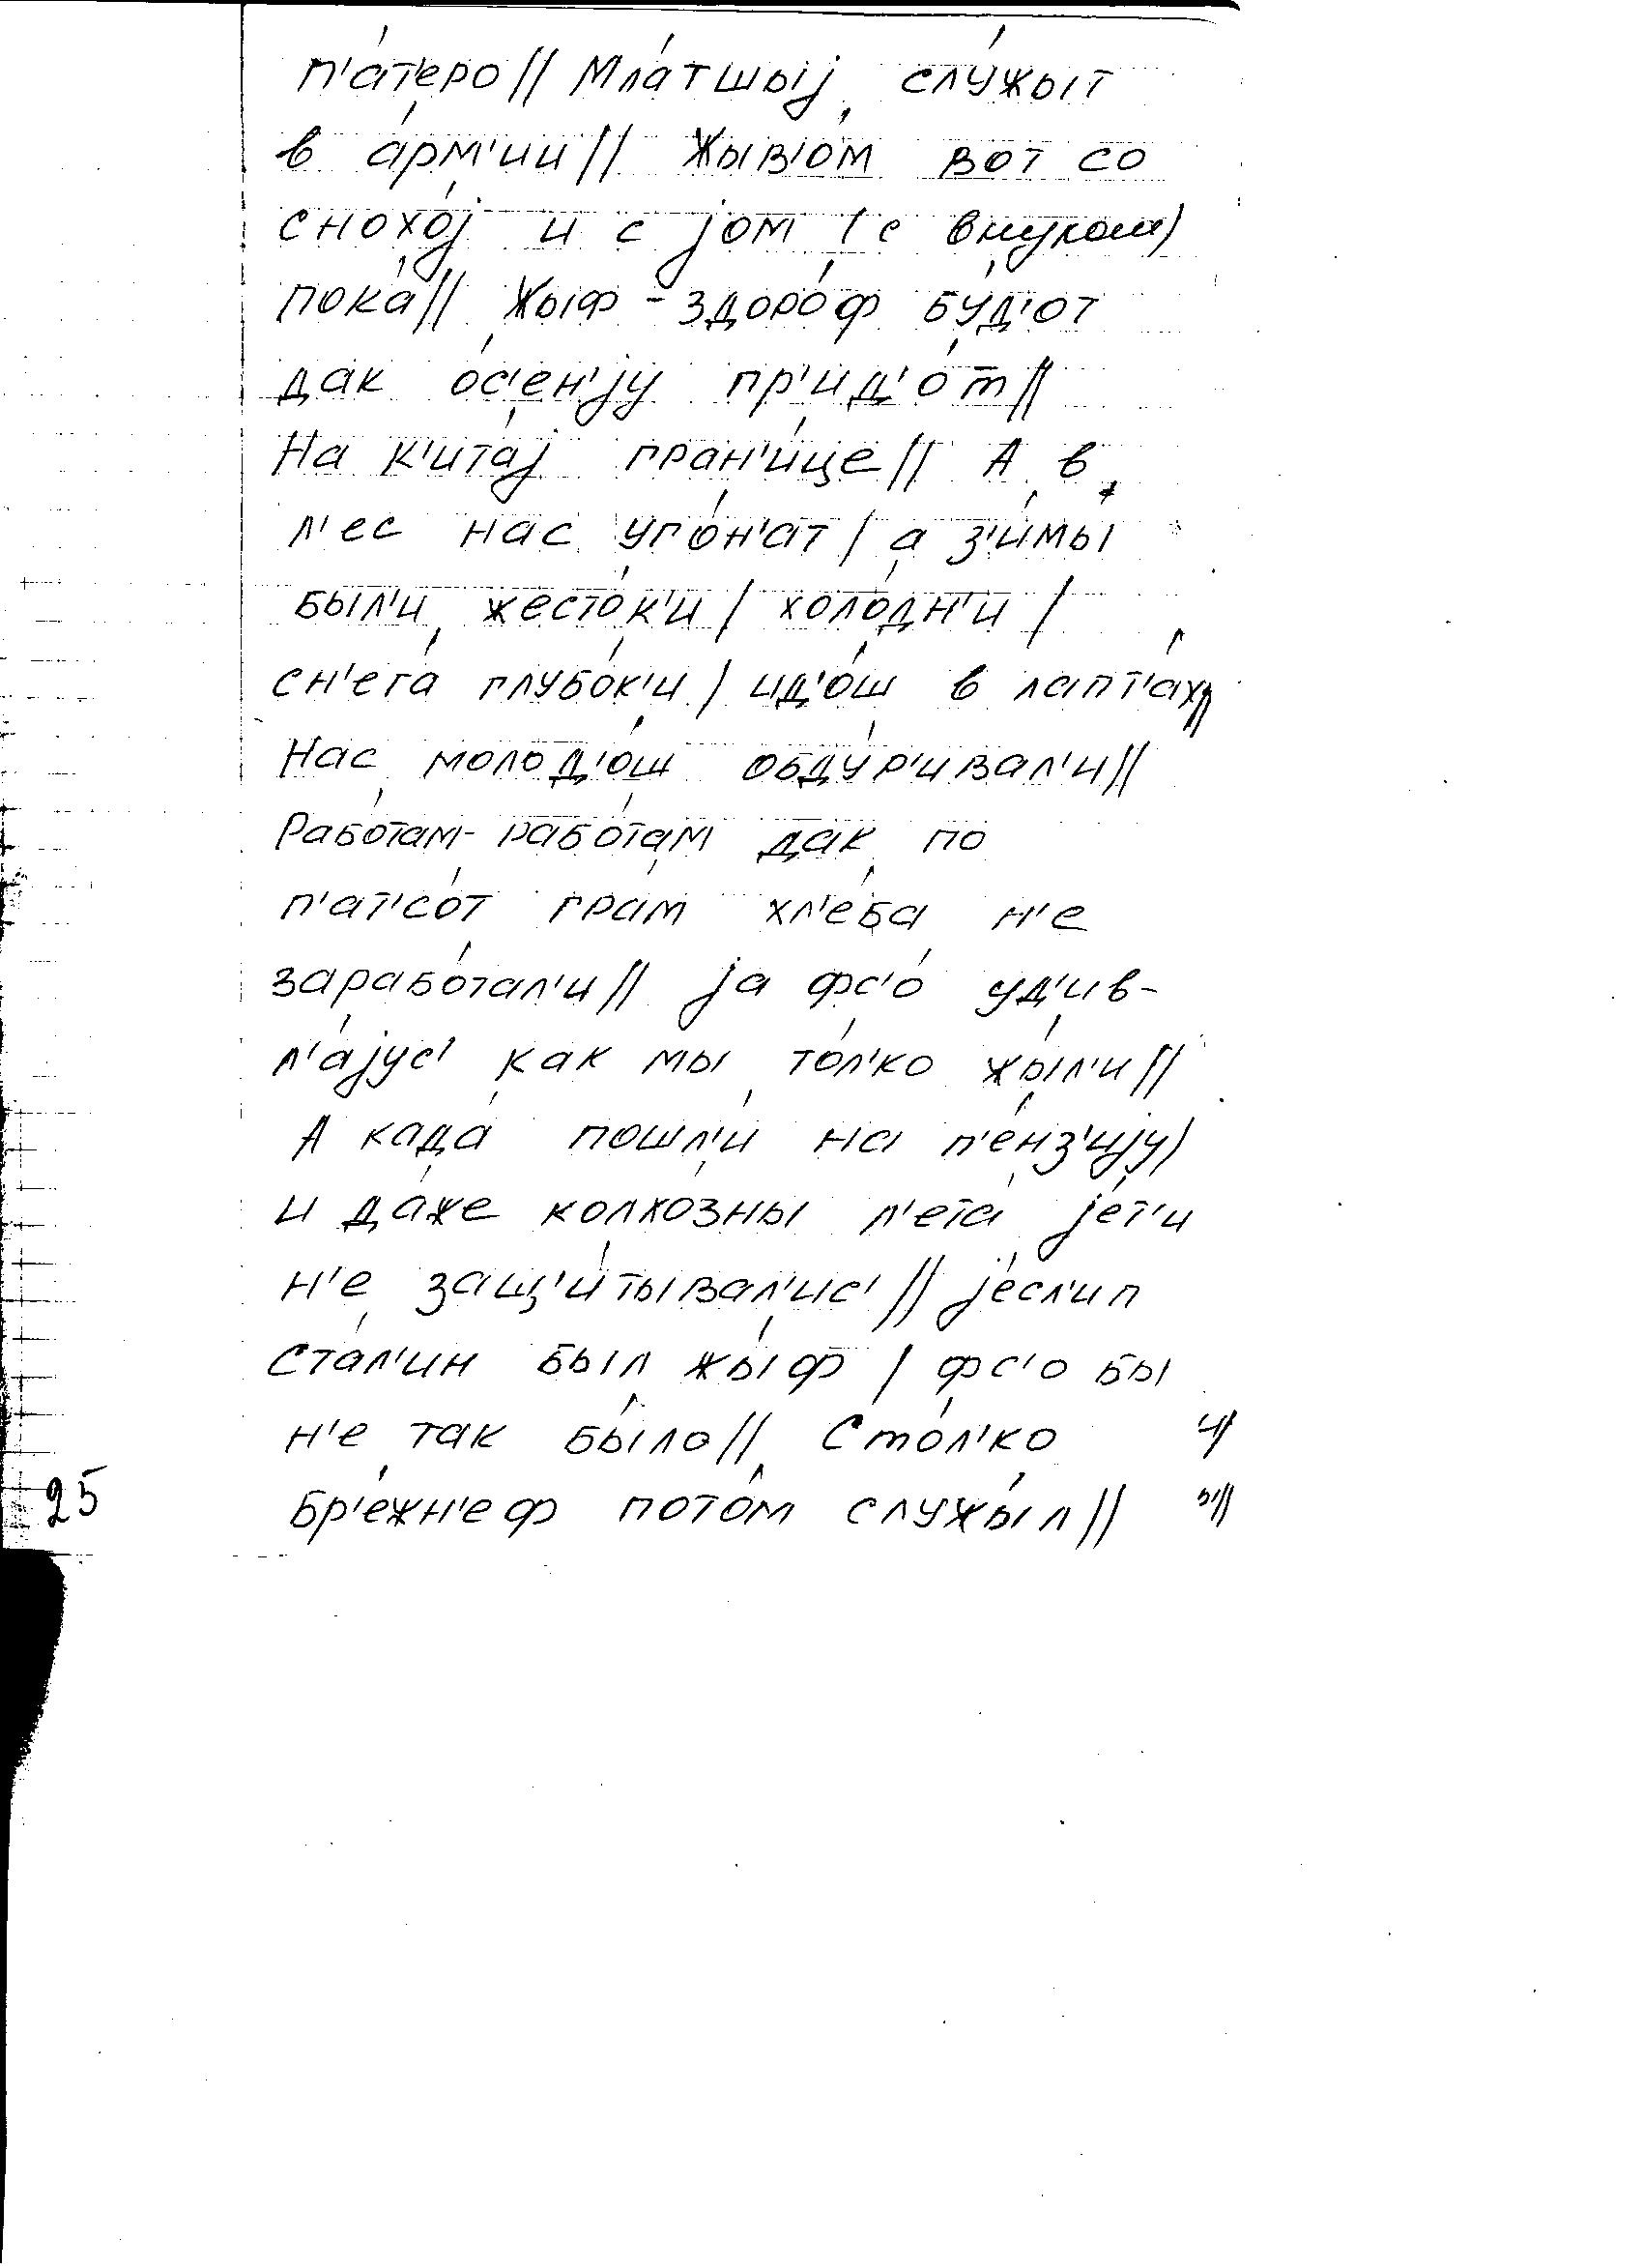 п'а́т'еро // Мла́тшыј слу́жыт
в а́рм'ии // Жыв'о́м вот со
снохо́ј и с јом (с внуком)
пока́ // Жыф - здоро́ф бу́д'от
дак о́с'ен'ју пр'ид'о́т //
На к'ита́ј гран'и́це // А в
л'ес нас уго́н'ат / а з'и́мы́
был'и жесто́к'и / холо́дн'и /
сн'ега́ глубо́к'и / ид'о́ш в лапт'а́х //
Нас молод'о́ш обду́р'ивал'и //
Рабо́там - рабо́там дак по
п'ат'со́т грам хл'е́ба н'е
зарабо́тал'и // ја фс'о́ уд'ив-
л'а́јус' как мы то́л'ко жы́л'и //
А када́ пошл'и́ на п'е́нз'ију)
и да́же колхо́зны л'ета́ је́т'и
н'е защ'и́тывал'ис' // је́сл'ип
Ста́л'ин был жы́ф / фс'о бы
н'е так бы́ло // Сто́л'ко
25 бр'е́жн'еф пото́м служы́л //